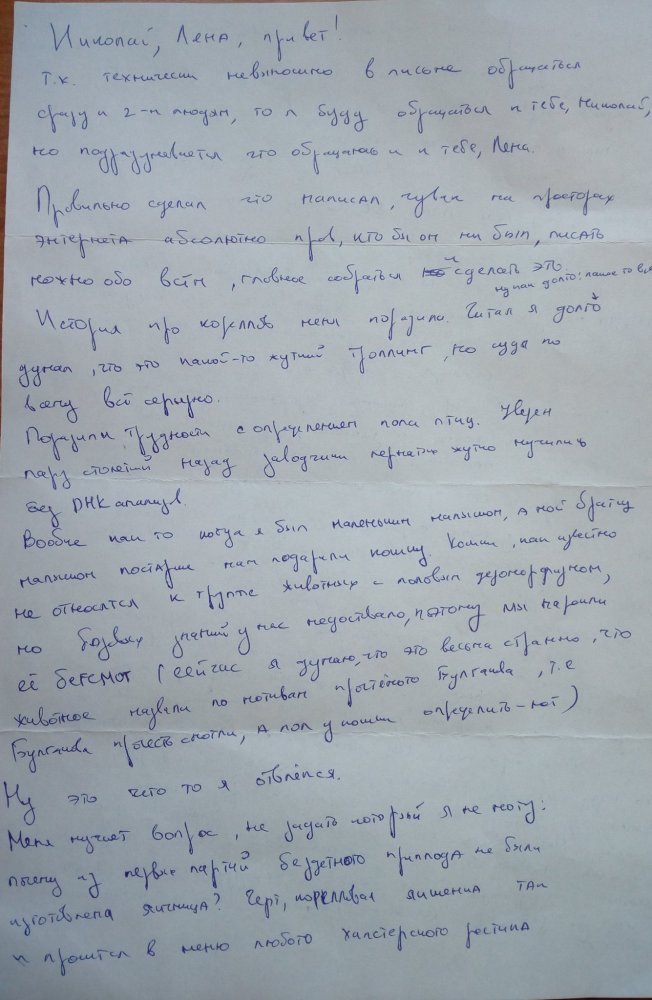 Николай, Лена, привет!
Т.к. технически невозможно в письме обращаться
сразу к 2-м людям, то я буду обращаться к тебе, Николай,
но подразумевается что обращаюсь и к тебе, Лена.
Правильно сделал что написал, чувак на просторах
энтернета абсолютно прав, кто бы он ни был, писать
можно обо всём, главное собраться и сделать это
ну как долго: какое то вр
История про корелляв меня поразила. Читал я долго
думал, что это какой-то жуткий троллинг, но судя по
всему всё серьёзно.
Поразили трудности с определением пола птиц. Уверен
пару столетий назад заводчики пернатых жутко мучились
без ДНК анализов.
Вообще как то когда я был маленьким малышом, а мой братиц
малышом постарше нам подарили кошку. Кошки, как известно
не относятся к группе животных с половым деморфизмом,
но базовых знаний у нас недоставало, поэтому мы нарекли
её Бегемот (сейчас я думаю, что это весьма странно, что
животное назвали по мотивам прочтёного Булгакова, т.е
Булгакова прочесть смогли, а пол у кошки определить - нет)
Ну это чего то я отвлёкся.
Меня мучает вопрос, не задать который я не могу:
почему из первых партий бездетного приплода не были
изготовлена яичница? Чёрт, кореллявая яишенка так
и просится в меню любого хипстерского рестика